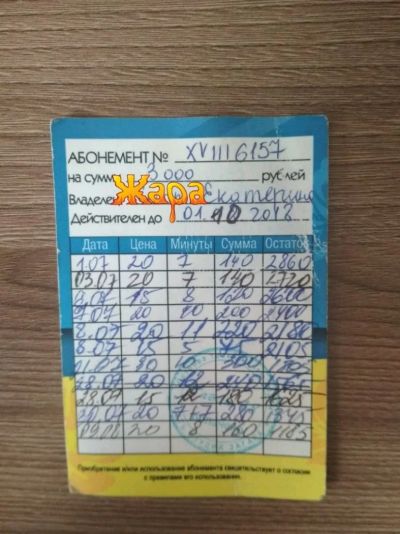 АБОНЕМЕНТ № XVIII6157
на сумм 3 000 рублей
Жара
Владеле Екатерина
Действителен до 01.10.2018
Дата Цена Минуты Сумма Остаток
1.07 20 7 140 2860
03.07 20 7 140 2720
15 8 120 2600
7.07 20 10 200 2400
8.07 20 11 220 2180
8.07 15 5 75 2105
300
28.07 20 12 240
28.07 15 12 180
20 7+7 280 1345
09.08 20 8 160 1185
Приобретение и/или использование абонемента свидетельствует о согласии
с правилами его использования.